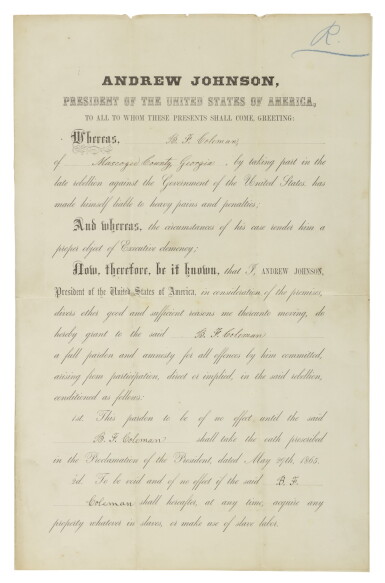 R.
ANDREW JOHNSON,
PRESIDENT OF THE UNITED STATES OF AMERICA,
TO ALL TO WHOM THESE PRESENTS SHALL COME, GREETING:
Whereas, B. F. Coleman,
of Muscogee County, Georgia, by taking part in the
late rebellion against the Government of the United States, has
made himself liable to heavy pains and penalties;
And whereas, the circumstances of his case render him a
proper object of Executive clemency;
Now, therefore, be it known, that I, ANDREW JOHNSON,
President of the United States of America, in consideration of the premises,
divers other good and sufficient reasons me thereunto moving, do
hereby grant to the said B. F. Coleman
a full pardon and amnesty for all offences by him committed,
arising from participation, direct or implied, in the said rebellion,
conditioned as follows:
1st. This pardon to be of no effect until the said
B. F. Coleman shall take the oath prescribed
in the Proclamation of the President, dated May 29th, 1865.
2d. To be void and of no effect if the said B. F.
Coleman shall hereafter, at any time, acquire any
property whatever in slaves, or make use of slave labor.